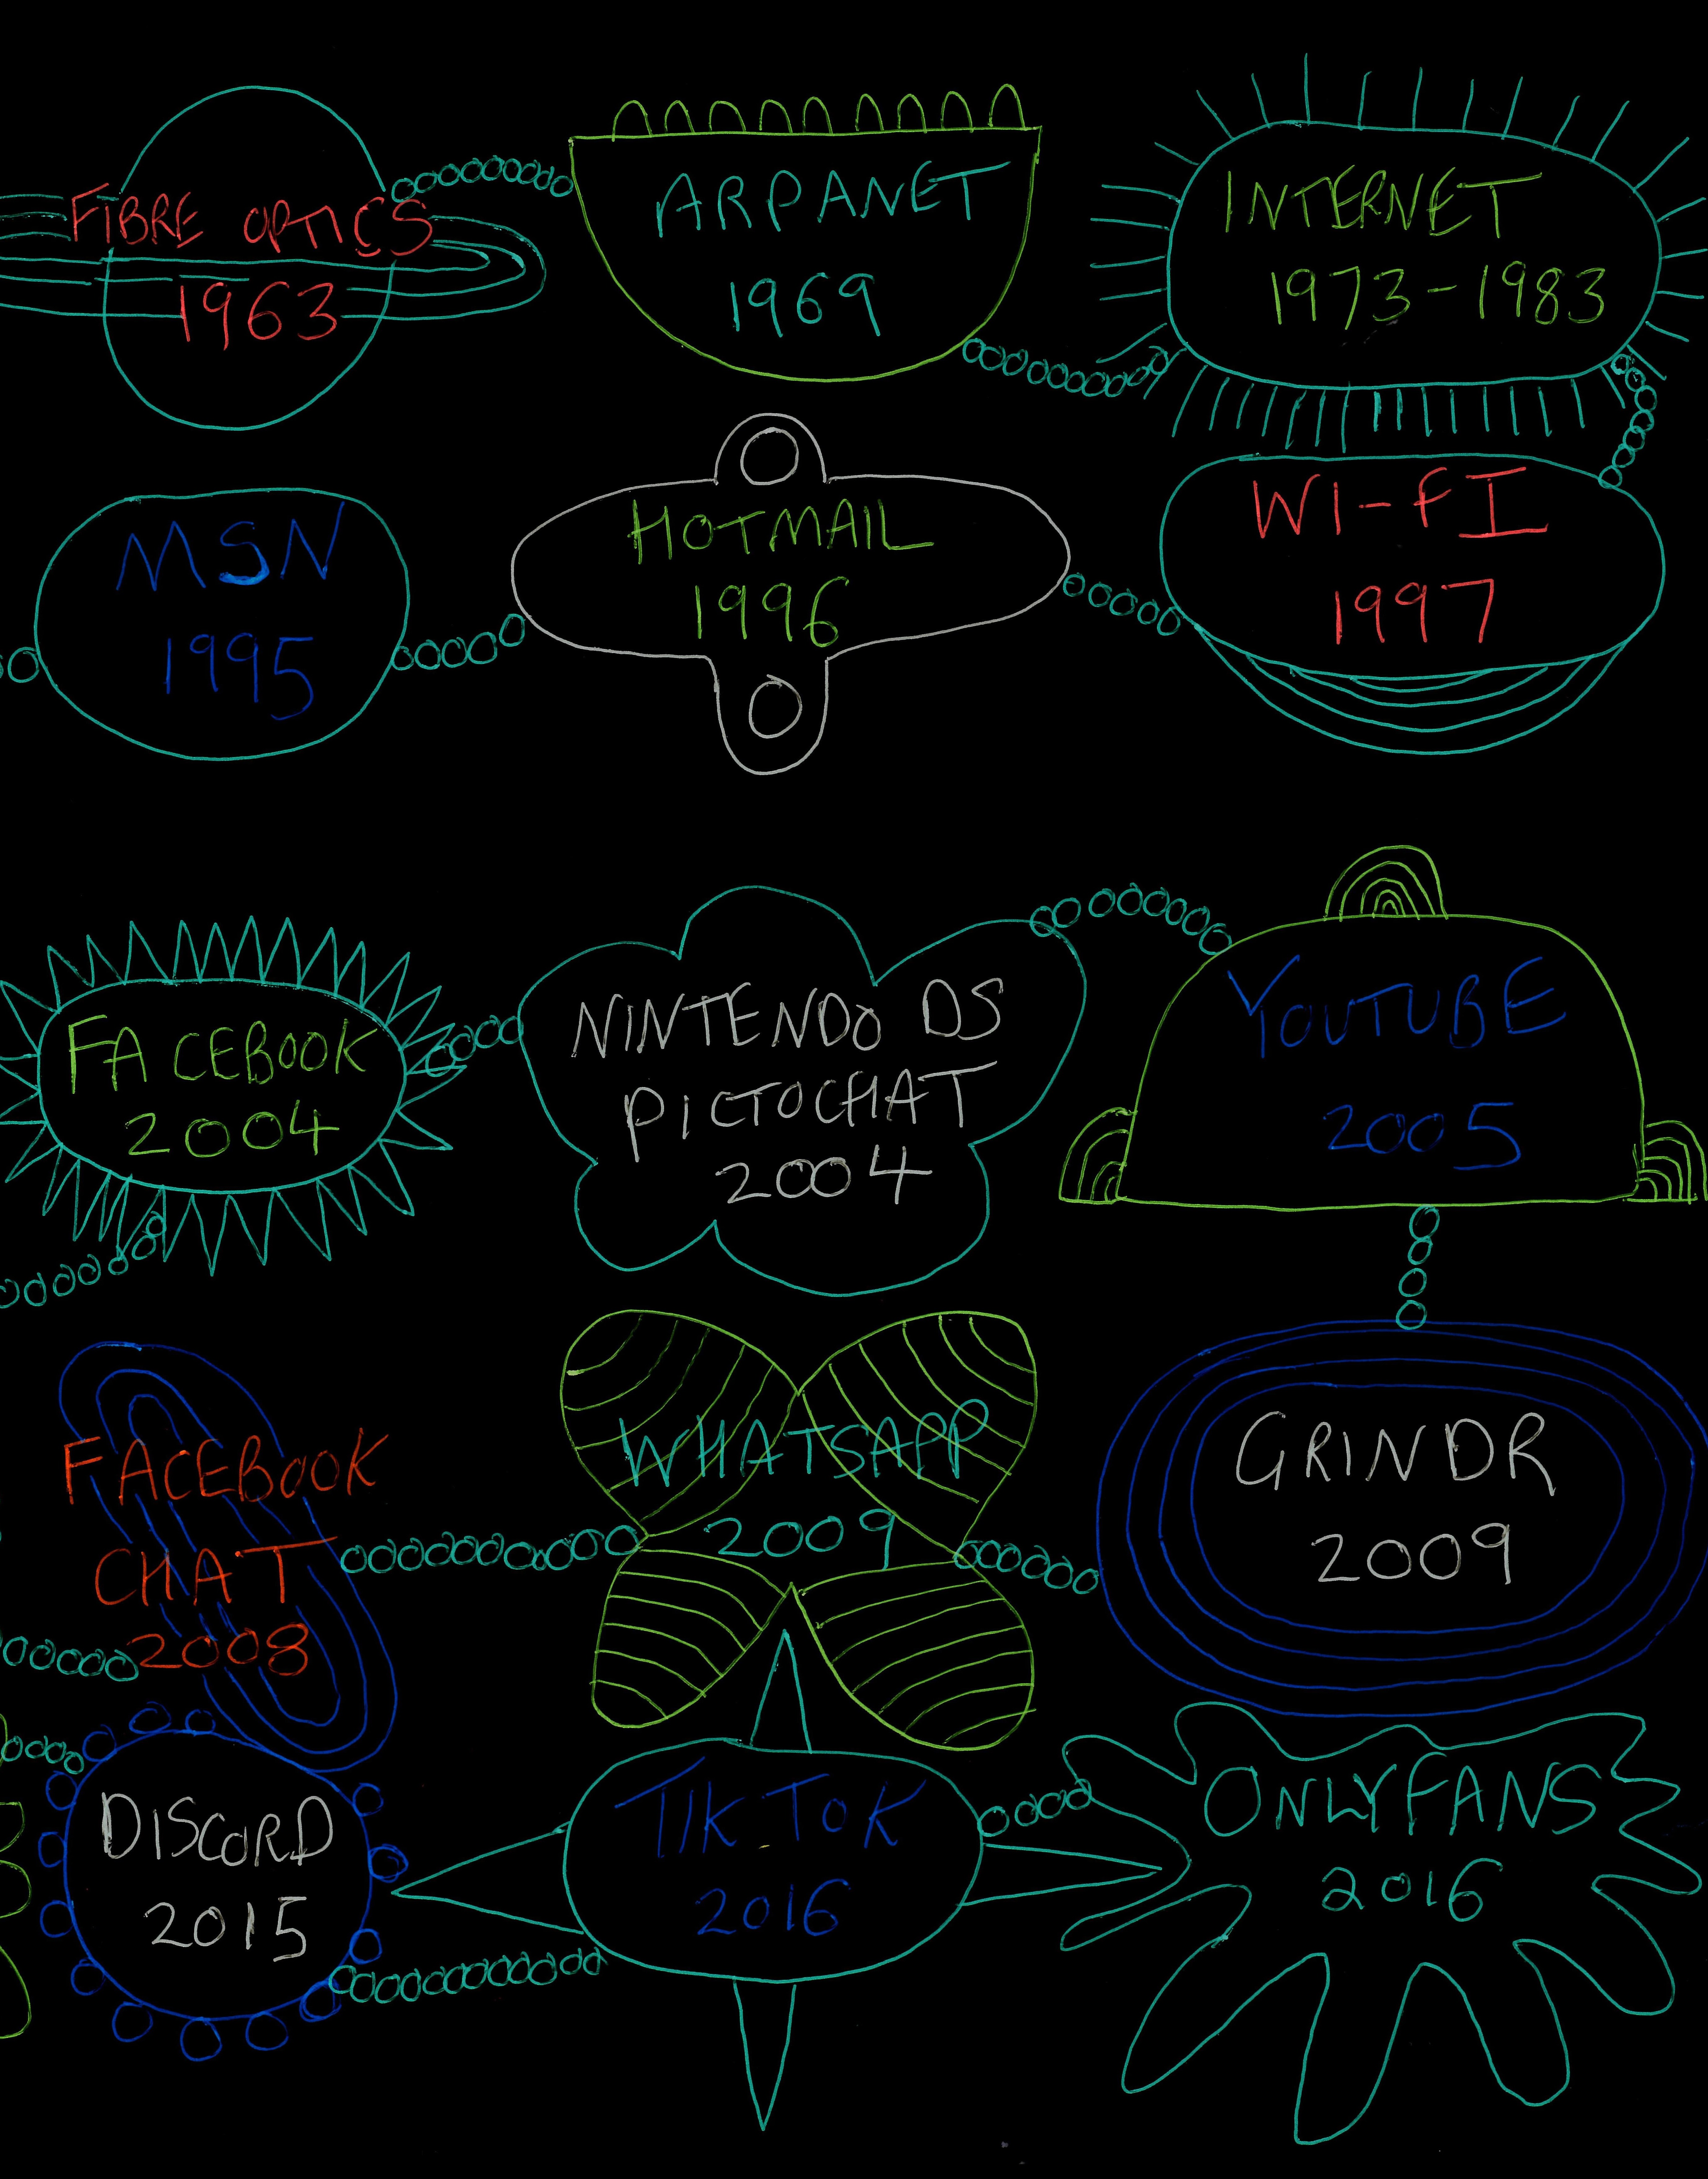 FIBRE OPTICS
1963
ARPANET
1969
INTERNET
1973-1983
MSN
1995
HOTMAIL
1996
WI-FI
1997
FACEBOOK
2004
NINTENDO DS
PICTOCHAT
2004
YOUTUBE
2005
FACEBOOK
CHAT
2008
WHATSAPP
2009
GRINDR
2009
DISCORD
2015
TIKTOK
2016
ONLYFANS
2016